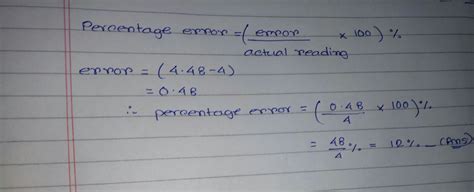 Percentage error = (error/actual reading × 100) %
error = (4.48-4)
= 0.48
∴ percentage error = (0.48/4 × 100)%
= 48/4 % = 12 % _ (Ans)